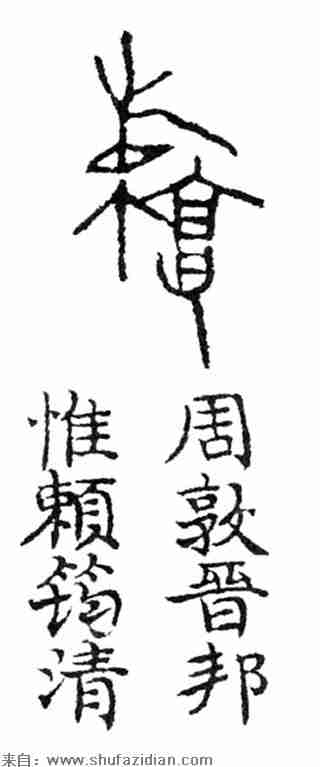 周敦晉邦
惟頼筠清
来自：www.shufazidian.com